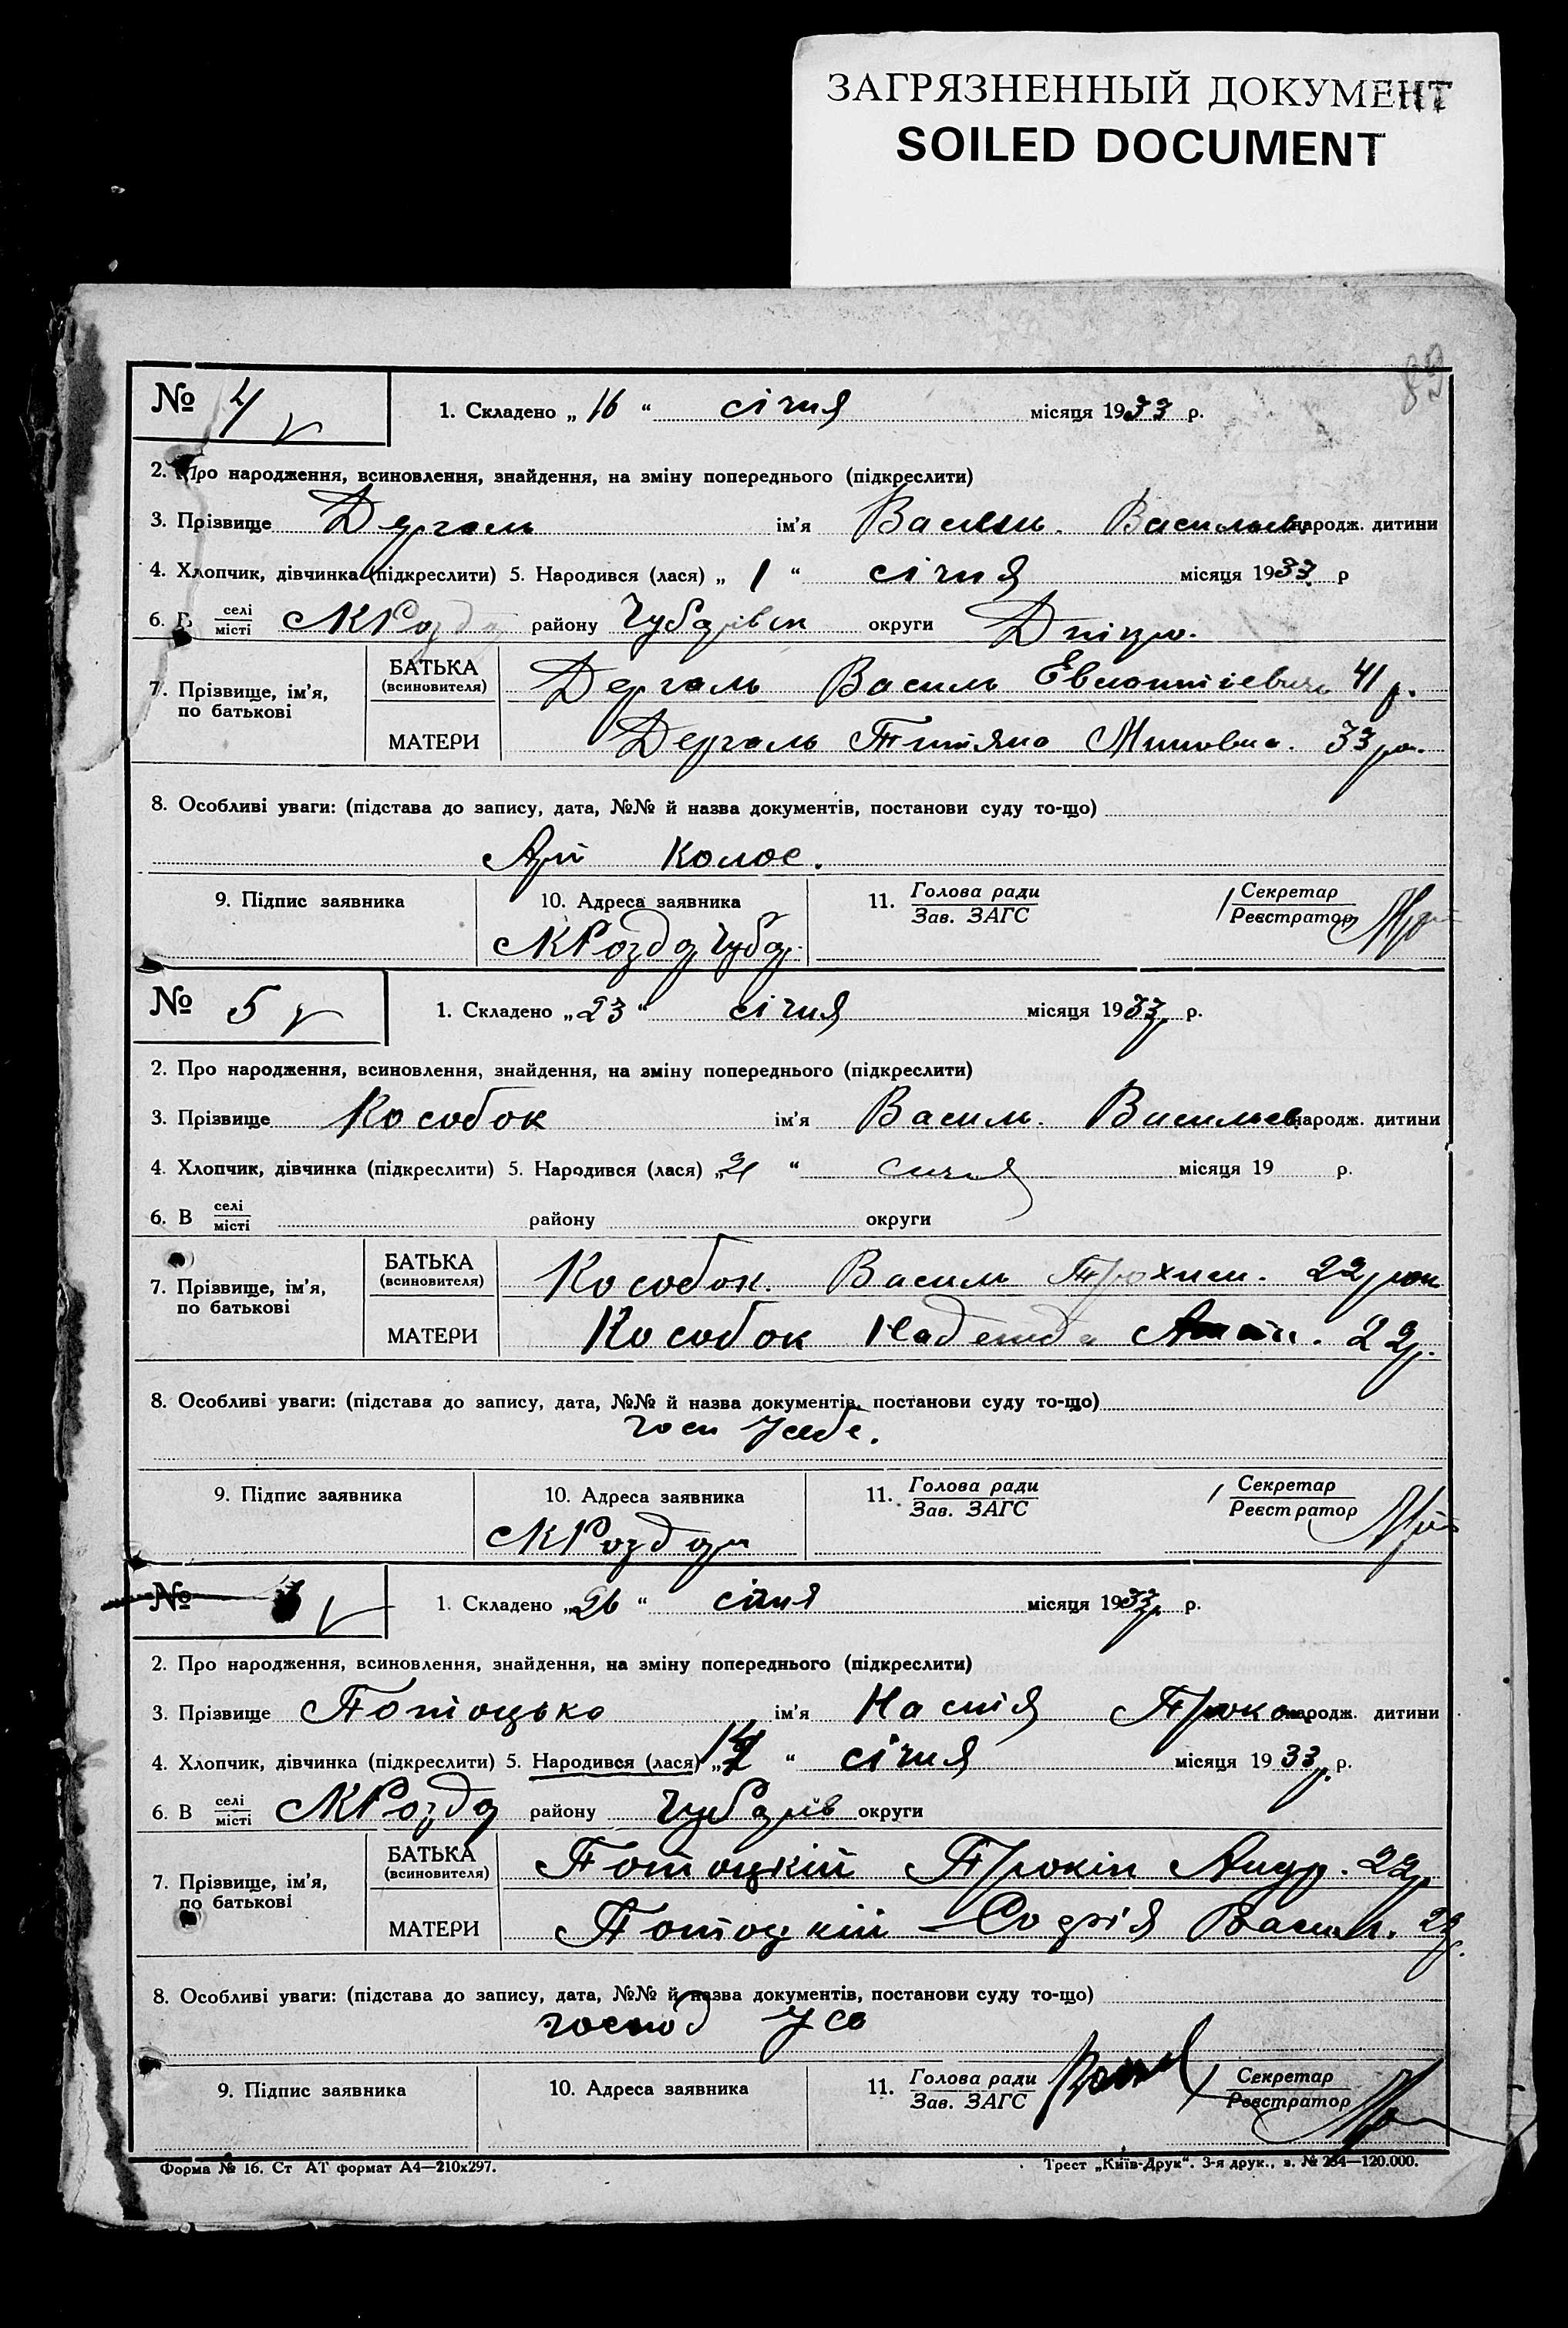 ЗАГРЯЗНЕННЫЙ ДОКУМЕНТ
SOILED DOCUMENT
89
№ 4 1. Складено „ 16 “ січня місяця 1933 р.
2. Про народження, всиновлення, знайдення, на зміну попереднього (підкреслити)
3. Прізвище Дергаль ім'я Василь. Васильев народж. дитини
4. Хлопчик, дівчинка (підкреслити) 5. Народився (лася) „ 1 “ січня місяця 1933 р
6. В селі/місті МКРозд району Чубарівсь округи Дніпр.
7. Прізвище, ім'я, по батькові БАТЬКА (всиновителя) Дергаль Василь 41 р.
МАТЕРИ Дергаль Титяна Миновна. 33 ро.
8. Особливі уваги: (підстава до запису, дата, №№ й назва документів, постанови суду то-що)
Колос.
9. Підпис заявника 10. Адреса заявника 11. Голова ради/Зав. ЗАГС Секретар/Реєстратор
№ 5 1. Складено „ 23 “ січня місяця 1933р р.
2. Про народження, всиновлення, знайдення, на зміну попереднього (підкреслити)
3. Прізвище Кособок ім'я Василь. Васильев народж. дитини
4. Хлопчик, дівчинка (підкреслити) 5. Народився (лася) „ 21 “ сичня місяця 19 р.
6. В селі/місті району округи
7. Прізвище, ім'я, по батькові БАТЬКА (всиновителя) Кособок. Василь Трохим. 22 рок
МАТЕРИ Кособок Надежда 22р.
8. Особливі уваги: (підстава до запису, дата, №№ й назва документів, постанови суду то-що)
9. Підпис заявника 10. Адреса заявника 11. Голова ради/Зав. ЗАГС Секретар/Реєстратор
№ 1. Складено „ 26 “ січня місяця 1933р р.
2. Про народження, всиновлення, знайдення, на зміну попереднього (підкреслити)
3. Прізвище Потоцька ім'я Настія Проков народж. дитини
4. Хлопчик, дівчинка (підкреслити) 5. Народився (лася) „ “ січня місяця 19 33р. р.
6. В селі/місті МКРозд району Чубарів округи
7. Прізвище, ім'я, по батькові БАТЬКА (всиновителя) Потоцкій Прокіп Андр. 22р
МАТЕРИ Потоцкій Софія Васил.
8. Особливі уваги: (підстава до запису, дата, №№ й назва документів, постанови суду то-що)
господ
9. Підпис заявника 10. Адреса заявника 11. Голова ради/Зав. ЗАГС Секретар/Реєстратор
Форма № 16. Ст АТ формат А4—210х297. Трест „Київ-Друк“. 3-я друк., з. № 234—120.000.